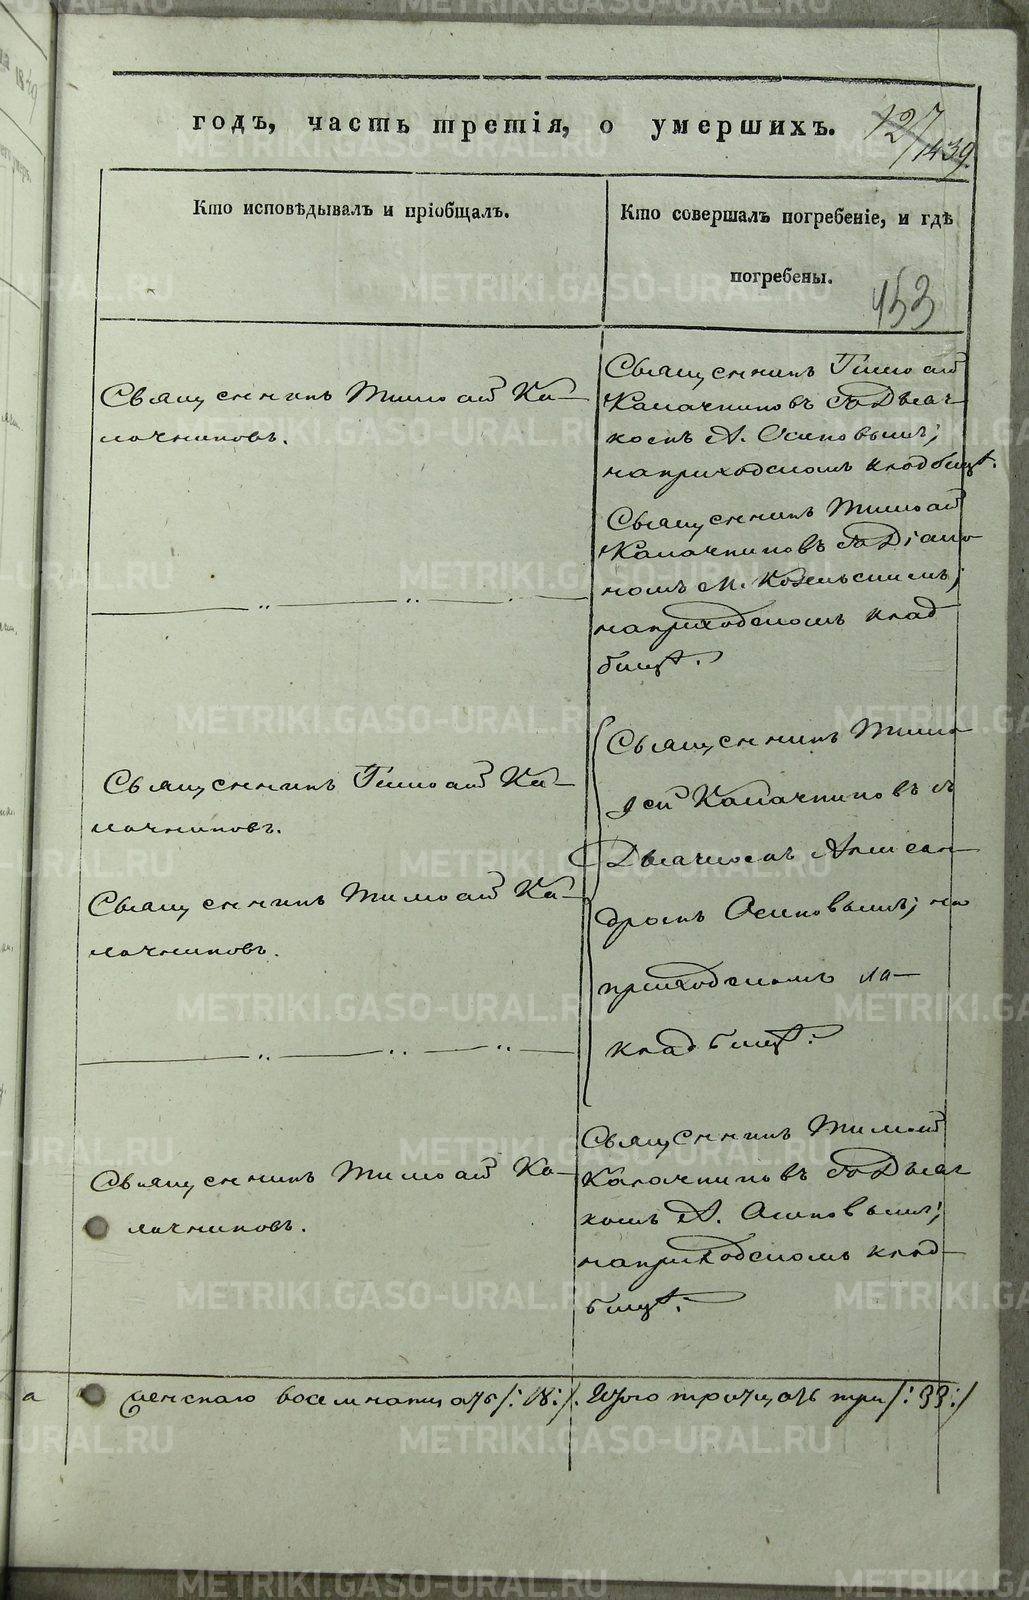 годъ, часть третія, о умершихъ.
127/1439.
Кто исповѣдывалъ и пріобщалъ.
Кто совершалъ погребеніе, и гдѣ
погребены.
153
Священникъ Тимоѳей Ка-
лачниковъ.
Священникъ Тимоѳей
Калачниковъ съ Дьяч-
комъ А. Осиповымъ;
на приходскомъ кладбищѣ.
Священникъ Тимоѳей
Калачниковъ съ Діако-
номъ М.
на приходскомъ клад
бищѣ.
Священникъ Тимоѳей Ка-
лачниковъ.
Священникъ Тимоѳей Ка-
лачниковъ.
Священникъ Тимо
ѳей Калачниковъ съ
Дьячкомъ Алексан-
дромъ Осиповымъ; на
приходскомъ
кладбищѣ.
Священникъ Тимоѳей Ка-
лачниковъ.
Священникъ Тимоѳей
Калачниковъ съ Дьяч
комъ А. Осиповымъ;
на приходскомъ клад-
бищѣ.
а женскаго восемнатцать /:18:/. Итого тритцать три /:33:/
METRIKI.GASO-URAL.RU